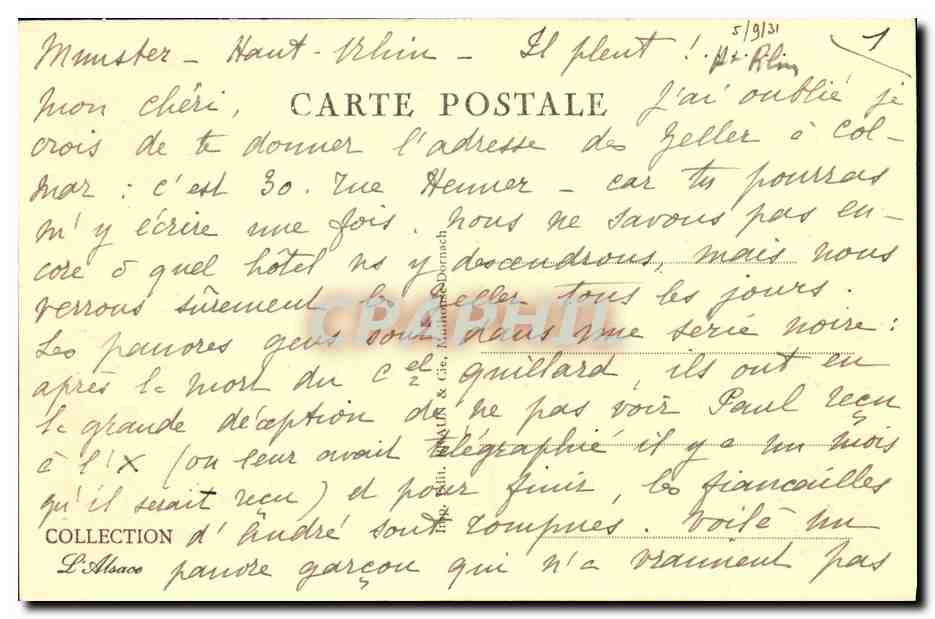 5/9/31
Munster - Haut-Rhin - Il pleut ! Ht Rhin 1
Mon chéri, CARTE POSTALE J'ai oublié je
crois de te donner l'adresse des Zeller à Col-
mar : c'est 30. rue Henner - car tu pourras
m'y écrire une fois. Nous ne savons pas en-
core à quel hôtel ns y descendrons, mais nous
verrons sûrement les Zeller tous les jours.
Les pauvres gens sont dans une série noire :
après la mort du Cel Quillard, ils ont eu
la grande déception de ne pas voir Paul reçu
à l'X (on leur avait télégraphié il y a un mois
qu'il serait reçu) et pour finir, les fiancailles
COLLECTION d'André sont rompues. Voilà un
L'Alsace pauvre garçon qui n'a vraiment pas
Imp. & Cie, Mulhouse-Dornach
CPAPHIL